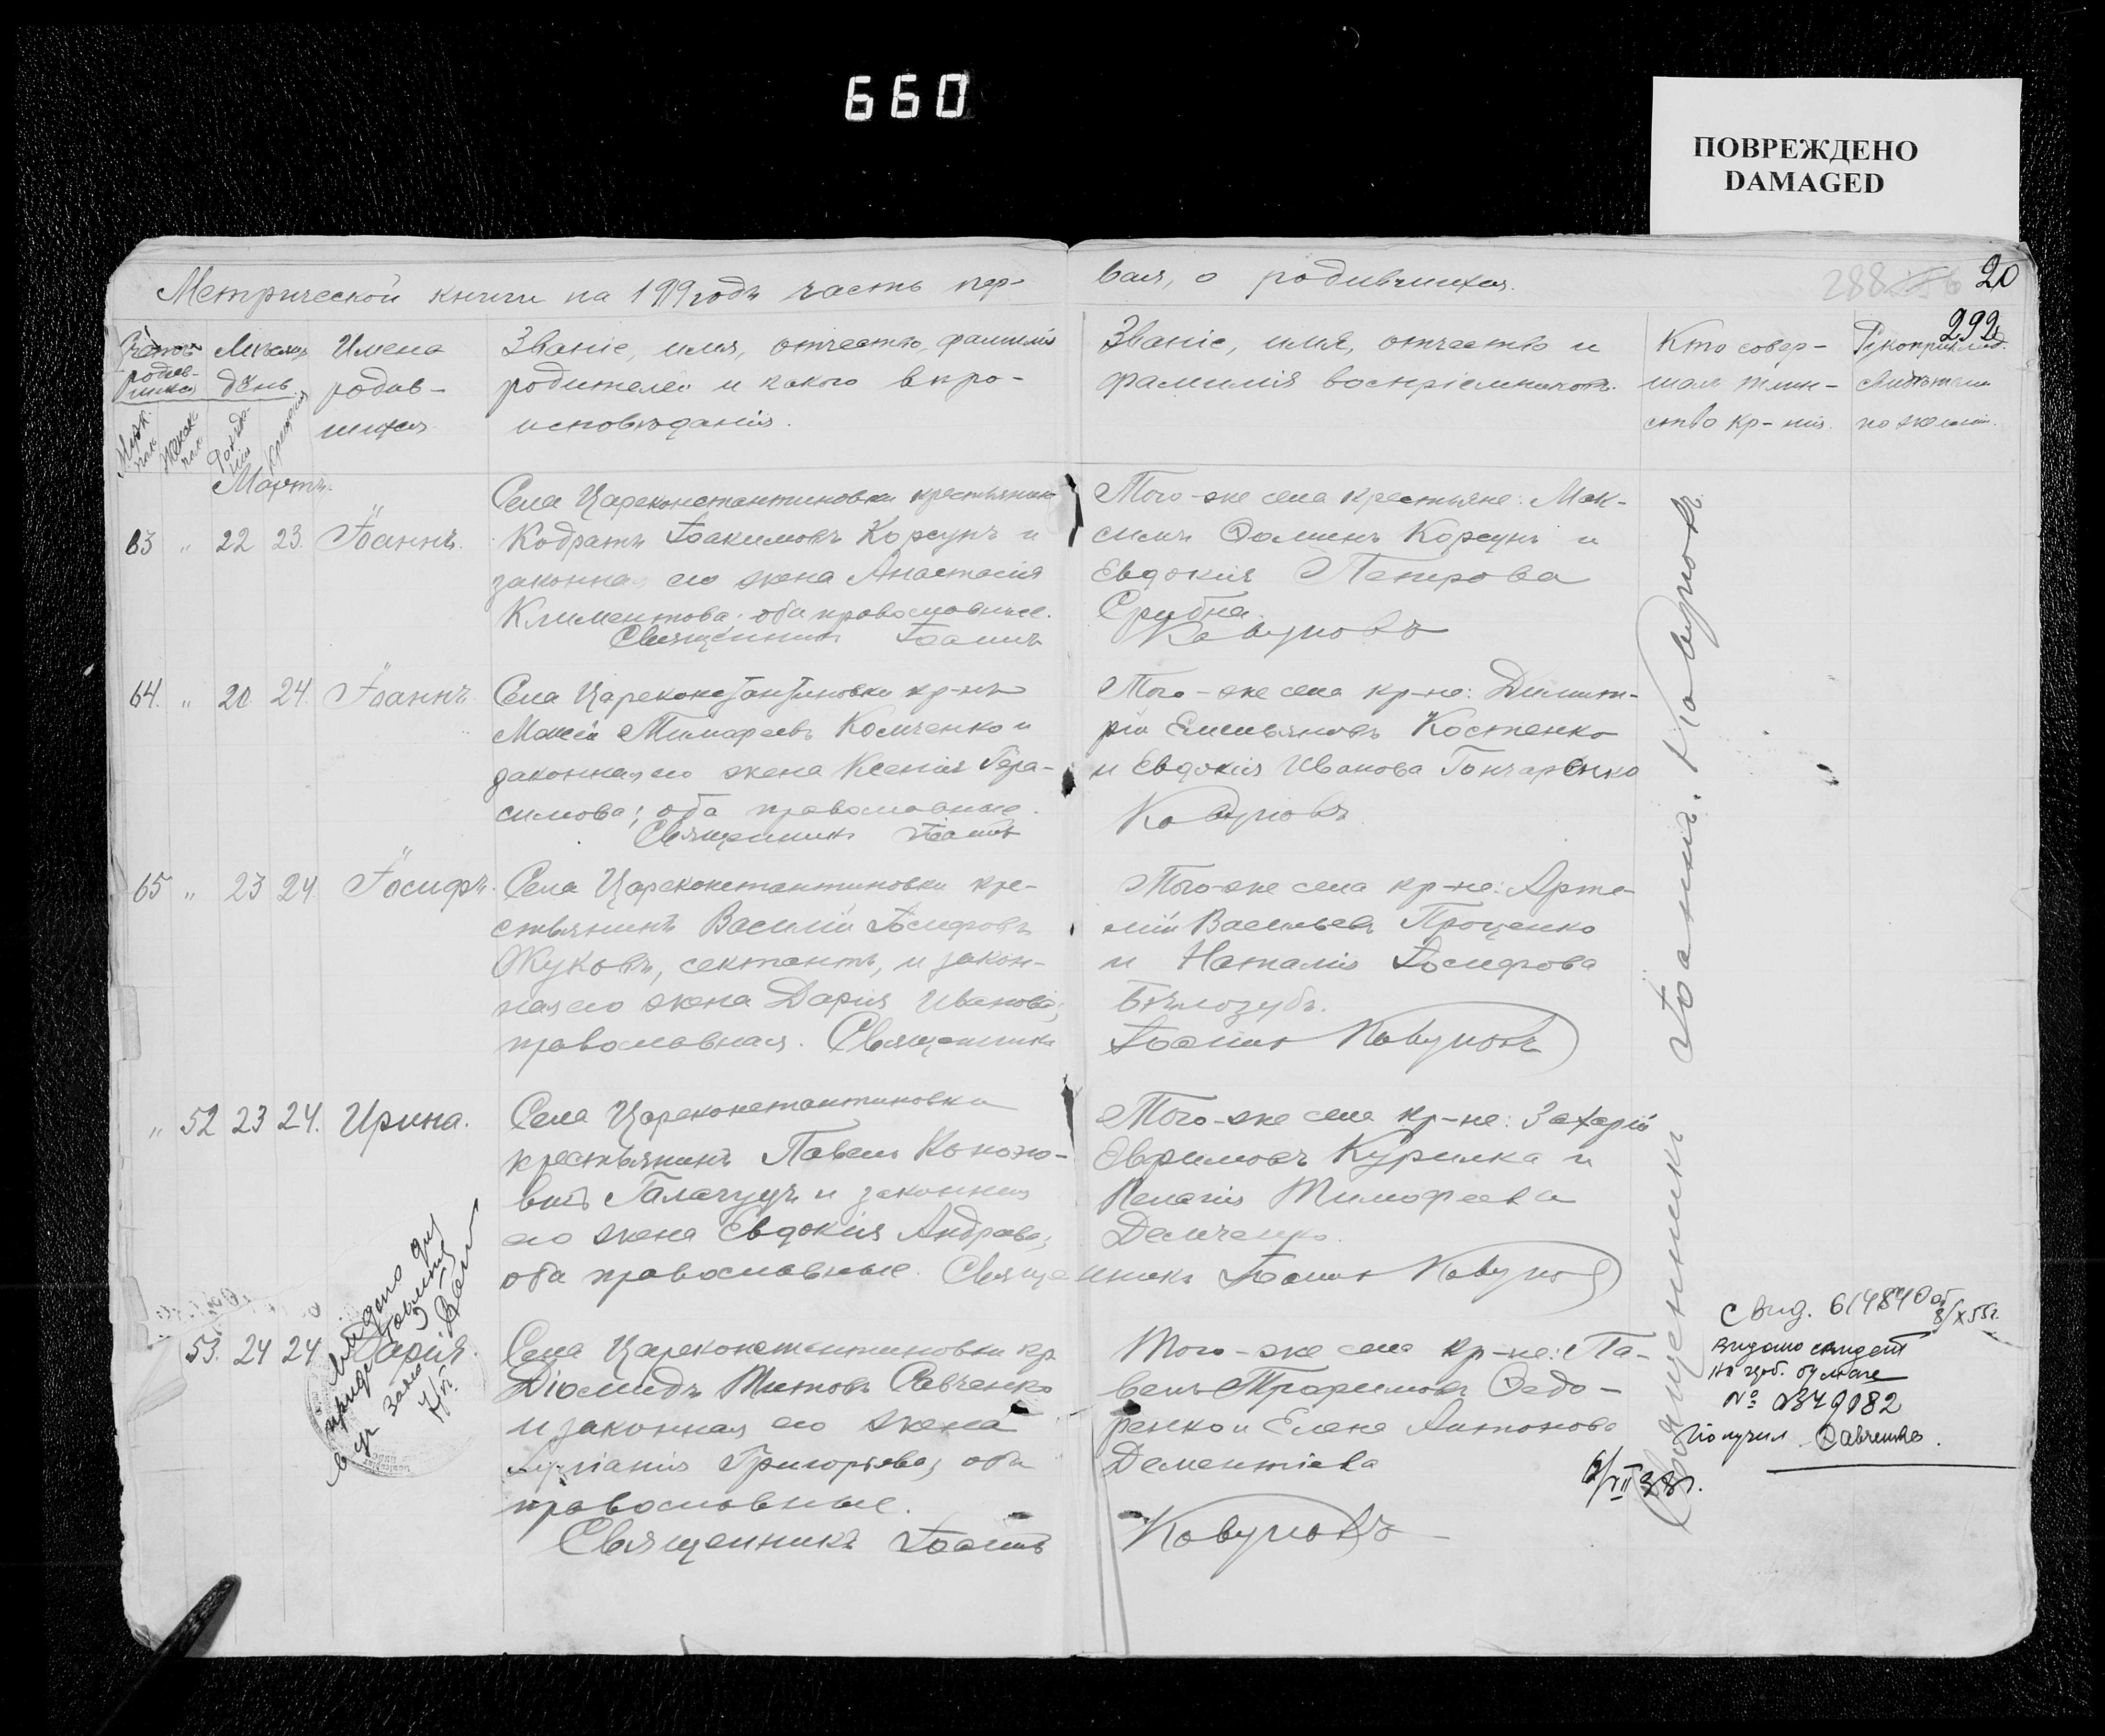 660
ПОВРЕЖДЕНО
DAMAGED
Метрической книги на 1919 годъ часть пер-
вая, о родившихся.
288
20
292
Счетъ родив-шихся
Мѣсяцъ день
Имена родив-шихся
Званіе, имя, отчество, фамилія
родителей и какого вѣро-
исповѣданія.
Званіе, имя, отчество и
фамилія воспріемниковъ.
Кто совер-
шалъ таин-
ство кр-нія.
Рукоприклад.
свидѣтелей
по желанію.
Муж. пол.
Женск. пол.
Рожде-нія
Крещенія
Мартъ.
63 " 22 23. Іоаннъ.
Села Цареконстантиновки крестьянинъ
Кодратъ Іоакимовъ Корсунъ и
законная его жена Анастасія
Климентова; оба православные.
Священникъ Іоаннъ
Того-же села крестьяне: Мак-
симъ Фоминъ Корсунъ и
Евдокія Петрова
Срибна.
Кавуновъ
64. " 20 24. Іоаннъ.
Села Цареконстантиновки кр-нъ
Моисей Тимофеевъ Комченко и
законная его жена Ксенія Гера-
симова; оба православные.
Священникъ Іоаннъ
Того-же села кр-не: Димит-
рій Емельяновъ Костенко
и Евдокія Иванова Гончаренко
Кавуновъ
65 " 23 24. Іосифъ.
Села Цареконстантиновки кре-
стьянинъ Василій Іосифовъ
Жуковъ, сектантъ, и закон-
ная его жена Дарія Иванова;
православная. Священникъ
Того-же села кр-не: Арте-
мій Васильевъ Проценко
и Наталія Іосифова
Бѣлозубъ.
Іоаннъ Кавуновъ
" 52 23 24. Ирина.
Села Цареконстантиновки
крестьянинъ Павелъ Кононо-
вичъ Галагуцъ и законная
его жена Евдокія Андреева;
оба православные. Священникъ Іоаннъ Кавуновъ
Того-же села кр-не: Захарій
Ефримовъ Курилка и
Пелагія Тимофеева
Демченко.
53. 24 24 Дарія.
Села Цареконстантиновки кр.
Діомидъ Титовъ Савченко
и законная его жена
Іуліанія Григорьева; оба
православные.
Священникъ Іоаннъ
Того-же села кр-не: Па-
велъ Трофимовъ Федо-
ренко и Елена Антонова
Дементіева
Кавуновъ
Священникъ Іоаннъ Кавуновъ
видано
Свид. 614840 от
8/X 55г.
видано свидет
на гоб. бумаге
№ 2349082
Получил Савченко.
6/VII 38г.